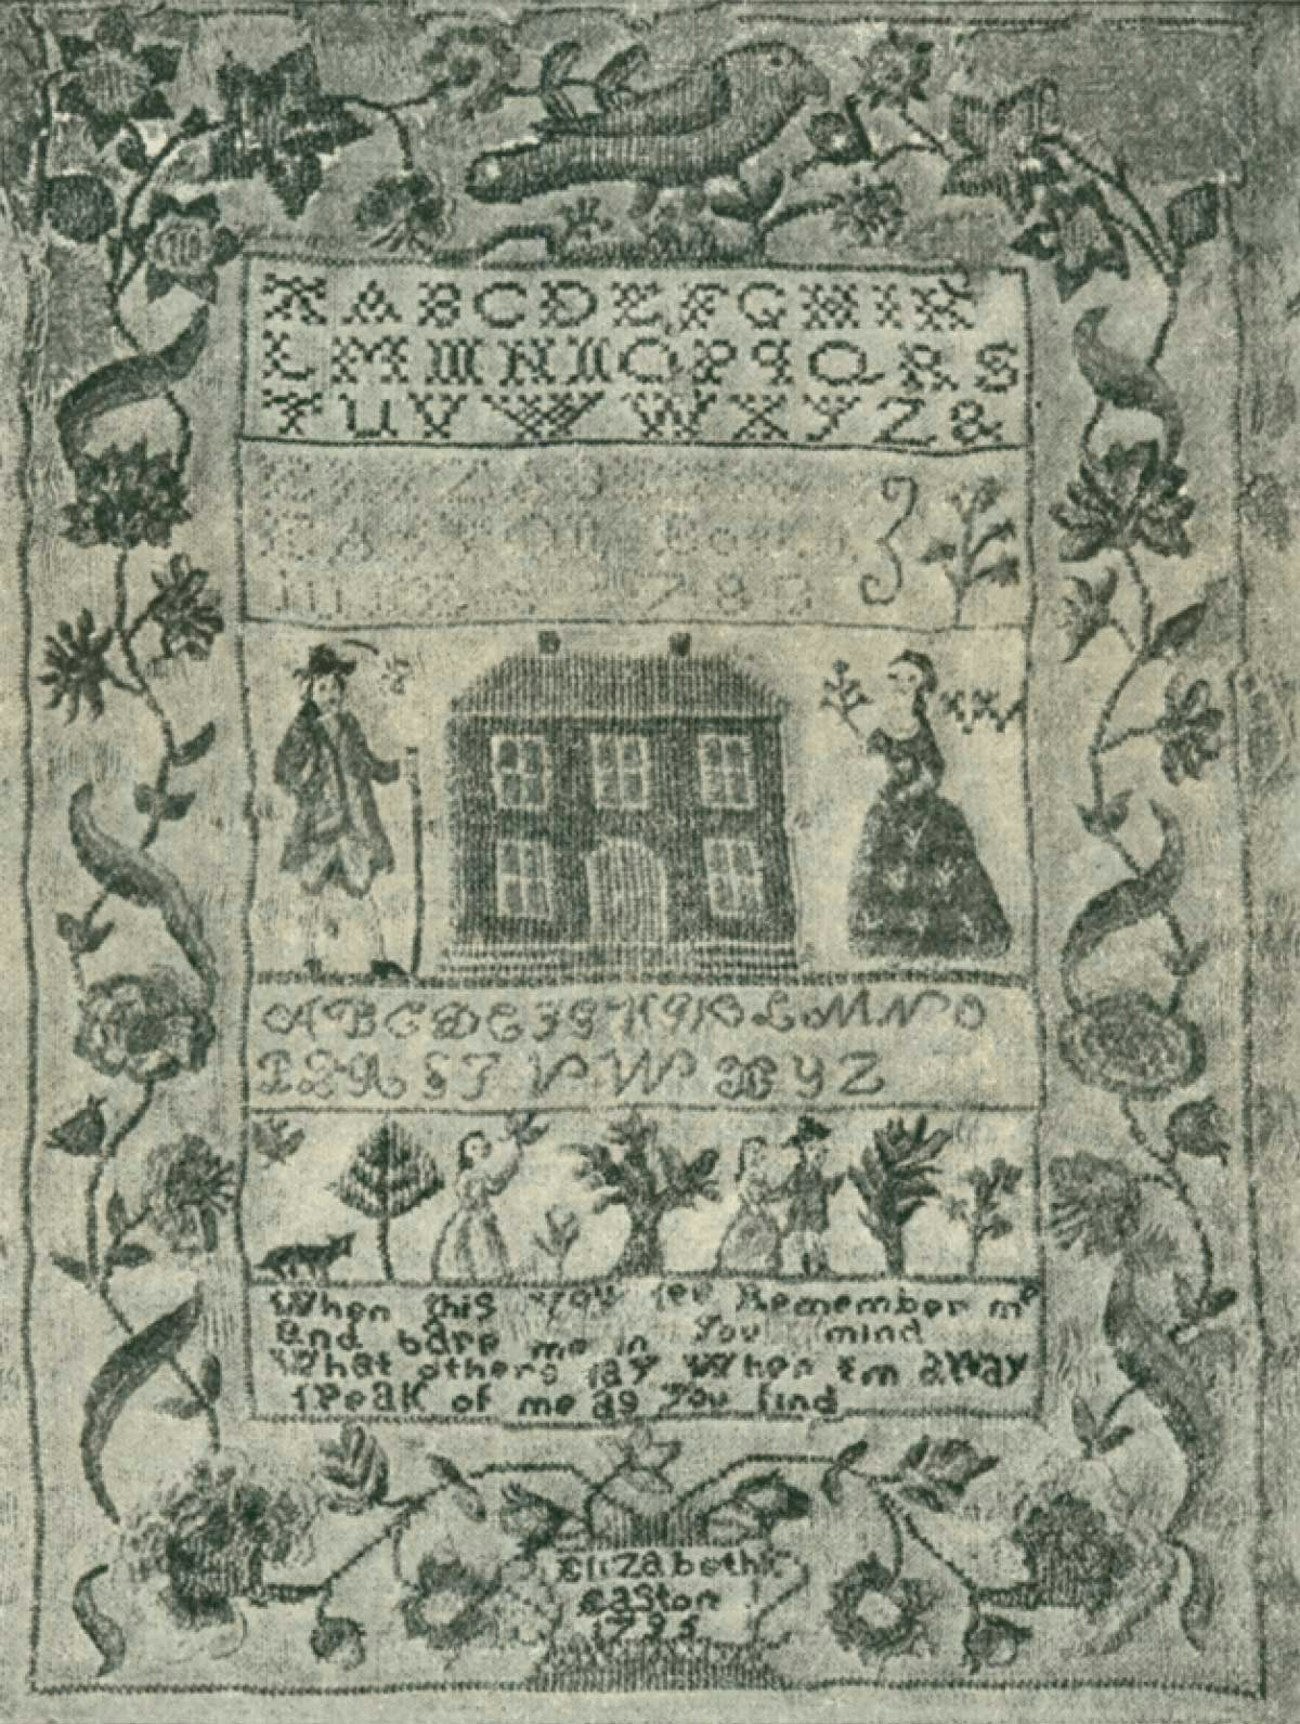 A A B C D E F G H I K
L M M N N O P q Q R S
T U V W W X Y Z &
Easton Born
1783
A B C D E F G H I K L M N O
P Q R S T V W X Y Z
When this you see Remember me
and bare me in you mind
What others say When im away
speak of me as you find
Elizabeth
Easton
1795